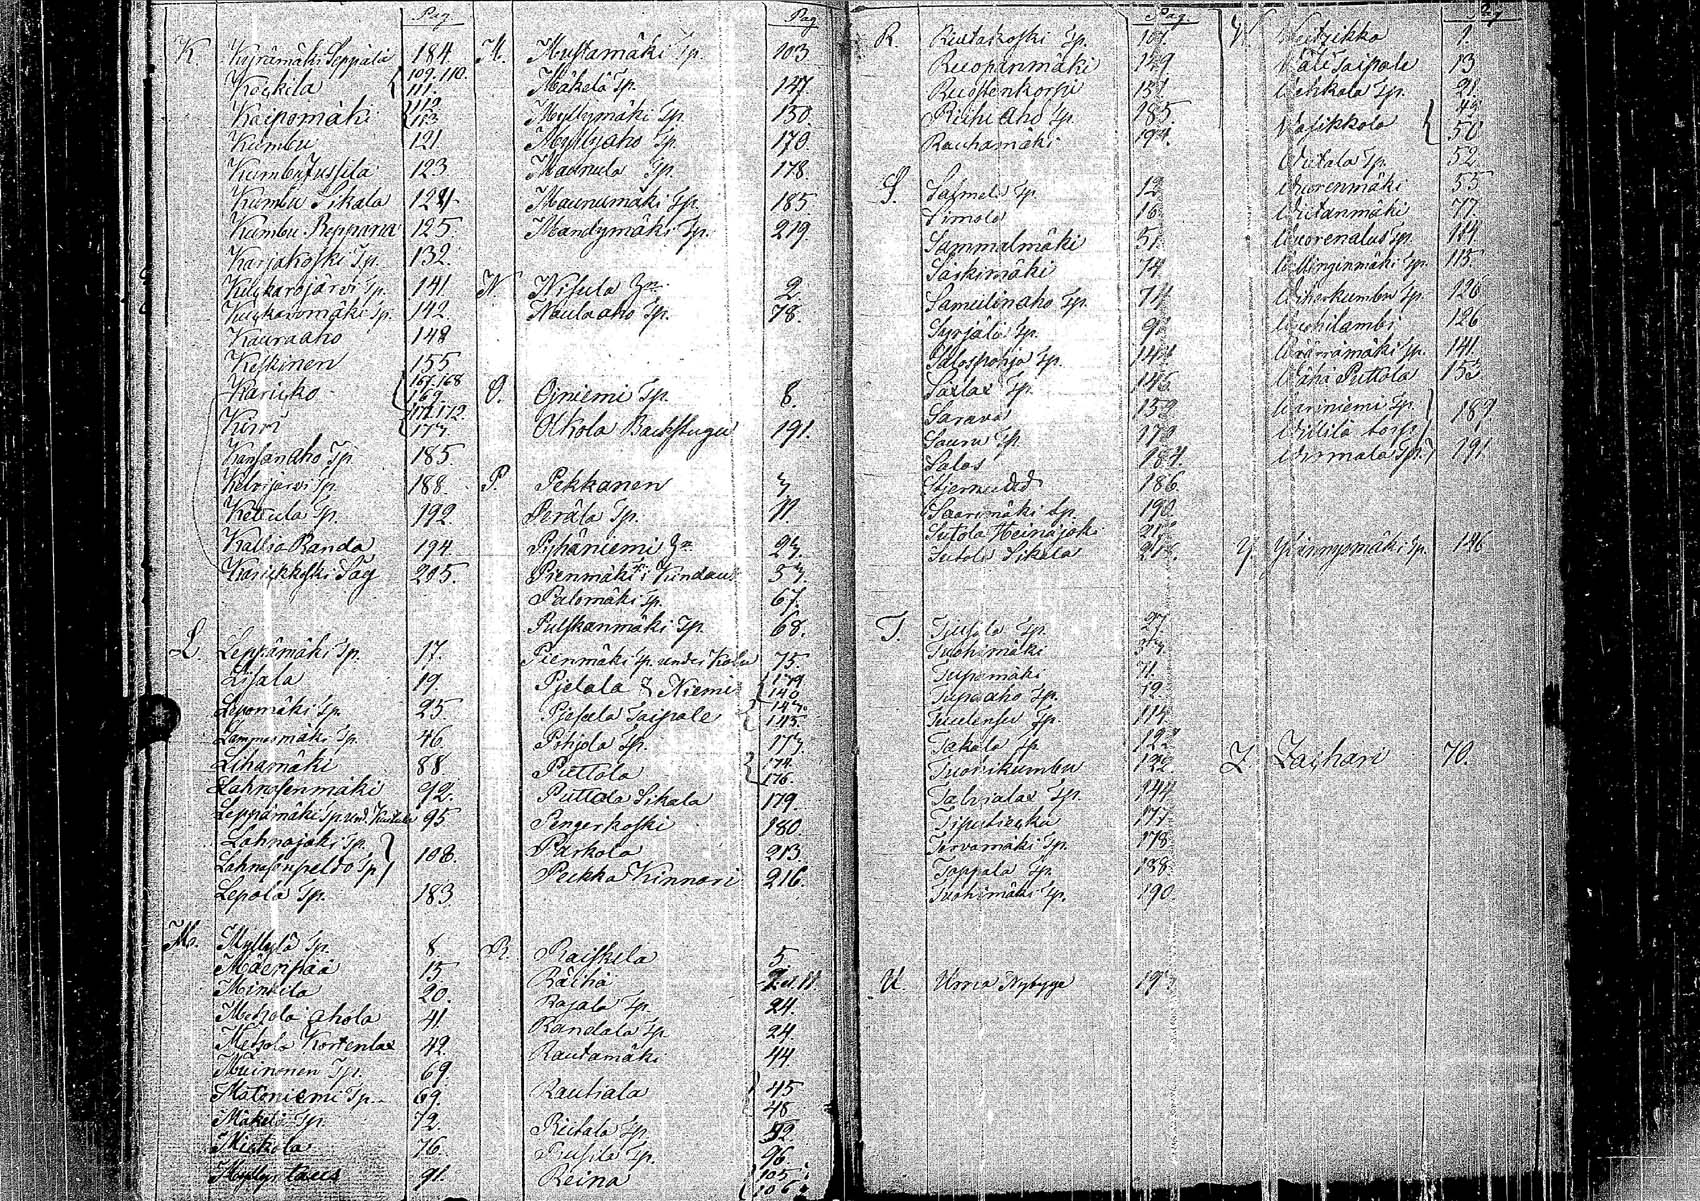 Pag
K. Kujrämäki Seppälä 184.
Koskela 109. 110. 111.
Kaipomäki 112 113
Kumbu 121.
Kumbu Jussila 123.
Kumbu Sikala 124
Kumbu Reppana 125.
Karjakoski Tp. 132.
Kuukarojärvi Tp. 141.
Kuukaromäki Tp. 142.
Kauraaho 148
Keskinen 155
Karikko 167. 168 169.
Kiiri 171. 172. 173.
Kansanaho Tp. 185
Kelojärvi Tp. 188.
Kettula Tp. 192.
Kallio Randa 194.
Karikkoski Såg 205.
L. Leppämäki Tp. 17.
Lijala 19.
Lepomäki Tp. 25.
Lammasmäki Tp. 46.
Lihamäki 88.
Lahnasenmäki 92.
Leppämäki Tp. und. 95.
Lahnajoki Tp.
Lahnasenpeldo Tp. 108.
Lepola Tp. 183.
M. Myllylä Tp. 8
Mäenpää 15
Minkila 20.
Metsola Ahola 41.
Metsola Kortenlax 42.
Muinonen Tp. 69.
Matoniemi Tp. 69.
Mäkelä Tp. 72.
Miekkola 76.
Myllys taus 91.
Pag
M. Mustamäki Tp. 103
Mäkelä Tp. 147.
Myllymäki Tp. 150.
Myllyaho Tp. 170.
Maunula Tp. 178.
Maunumäki Tp. 185.
Mandymäki Tp. 219.
N. Nisula 2.
Naulaaho Tp. 78.
O. Ojniemi Tp. 8.
Olkola Backstugu 191.
P. Pekkanen
Perälä Tp. 11.
Pyhäniemi 23.
Pienmäki i Kindaus 57.
Palomäki Tp. 67.
Pulskanmäki Tp. 68.
Pienmäki Tp. under Kola 75.
Pjelala & Niemi 139 140
Pjelala Taipale 143. 145.
Pohjola Tp. 173.
Puttola 174. 176.
Puttola Sikala 179.
Pengerkoski 180.
Parkola 213.
Pekka Kinnari 216.
R. Raiskila 5.
Räihä 7. et. 11.
Rajala Tp. 24.
Randala Tp. 24
Rautamäki 44.
Rautiala 45 48
Riitala Tp. 52.
Rusila Tp. 96.
Reina 105. 106.
Pag.
R. Rautakoski Tp. 107.
Ruopanmäki 129
Ruostenkorpi 151.
Riihi aho Tp. 185.
Rauhamäki 194.
S. Salmela Tp. 12
Simola 16
Sammalmäki 51.
Särkimäki 74.
Samulinaho Tp. 74
Syrjälä Tp.
Salospohja Tp. 144
Saxlax Tp. 146.
Sarava 152
Sauru Tp. 179
Salos 184.
Stjernudd 186.
Saarimäki Tp. 190.
Sutola Heinäjoki
Sutola Sikala 218.
T. Tjusala Tp. 27.
Tuohimäki
Tupamäki 71.
Tupaaho Tp.
Tuulensu Tp. 114.
Takala Tp. 122
Tuomikumbu 122.
Talvialax Tp. 144
Tipsutizka 177.
Tervamäki Tp. 178.
Tappala Tp. 188.
Tuohimäki Tp. 190.
U. Urria Nybygge
W. Weitzikko 1.
Wäli Taipale 13
Wehkala Tp. 21.
Wasikkola 49 50
Wiitala Tp. 52.
Wuorenmäki 55
Wiitanmäki 77.
Wuorenalus Tp. 114
Wenginmäki Tp. 115
Wiherkumbu Tp. 126
Wuohilambi 126
Wäärämäki Tp. 141.
Wähä Puttola 153
Wariniemi Tp.
Willilä torp. 187.
Wirmala Tp. 191.
Y. Yläinnysmäki Tp. 146
Z. Zachari 70.